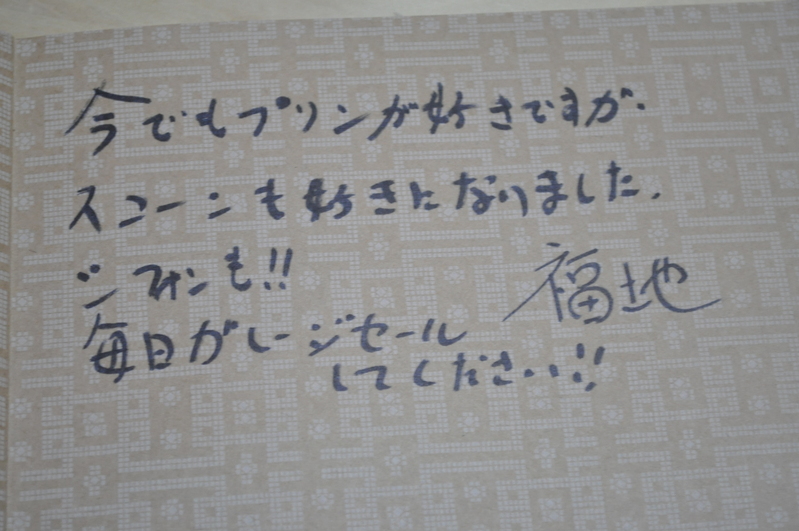 今でもプリンが好きですが、
スコーンも好きになりました.
シフォンも!!
福地
毎日ガレージセール
してください!!